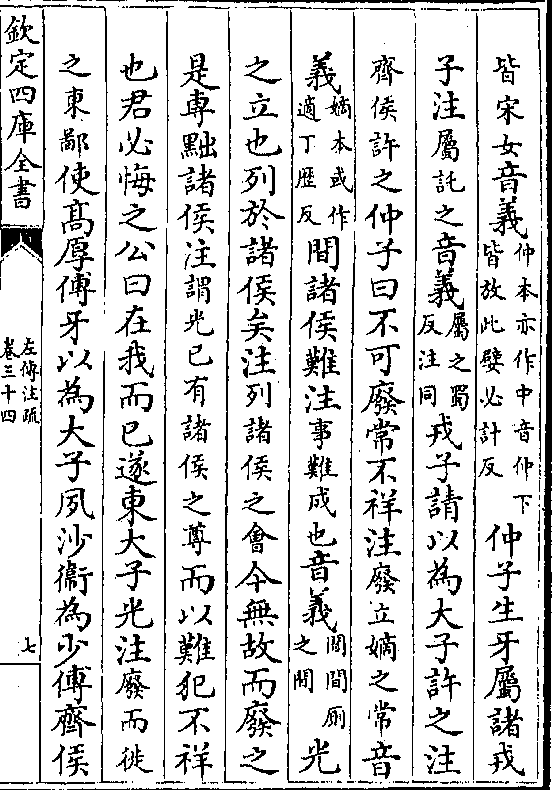 皆宋女音義仲本亦作中音仲下皆放此嬖必計反仲子生牙屬諸戎
子注屬託之音義屬之蜀反注同戎子請以為大子許之注
齊侯許之仲子曰不可廢常不祥注廢立嫡之常音
義嫡本或作適丁歴反間諸侯難注事難成也音義間間厠之間光
之立也列於諸侯矣注列諸侯之會今無故而廢之
是専黜諸侯注謂光已有諸侯之尊而以難犯不祥
也君必悔之公曰在我而已遂東大子光注廢而徙
之東鄙使髙厚傅牙以為大子夙沙衞為少傅齊侯
欽定四庫全書
左傳注疏
卷三十四
七